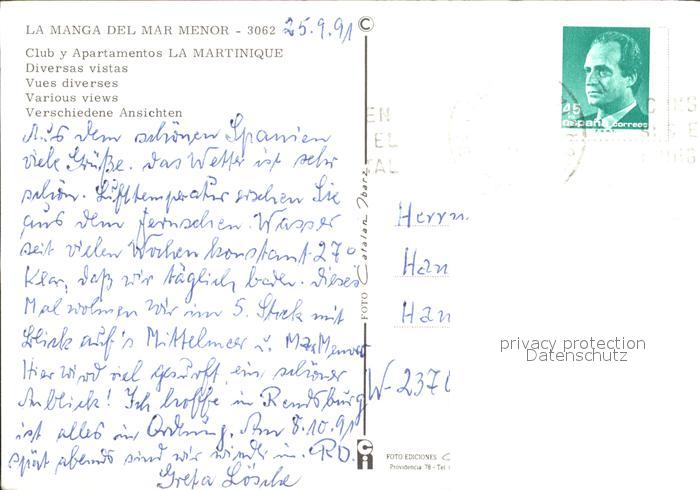 LA MANGA DEL MAR MENOR - 3062 25.9.91
Club y Apartamentos LA MARTINIQUE
Diversas vistas
Vues diverses
Various views
Verschiedene Ansichten
Aus dem schönen Spanien
viele Grüße. das Wetter ist sehr
schön. Lufttemperatur ersehen Sie
aus dem Fernsehen. Wasser
seit vielen Wochen konstant 27°
Klar, daß wir täglich baden. Dieses
Mal wohnen wir im 5. Stock mit
Blick auf's Mittelmeer u. Mar Menor
Hier wird viel gesurft, ein schöner
Anblick! Ich hoffe in Rendsburg
ist alles in Ordnung. Am 8.10.91
spät abends sind wir wieder in RD.
Greta Lösche
©
FOTO Catalan Ibarz
FOTO EDICIONES
Providencia 78 - Tel
45
España correos
EN
EL
TAL
Herrn
Han
Han
W-2370
privacy protection
Datenschutz